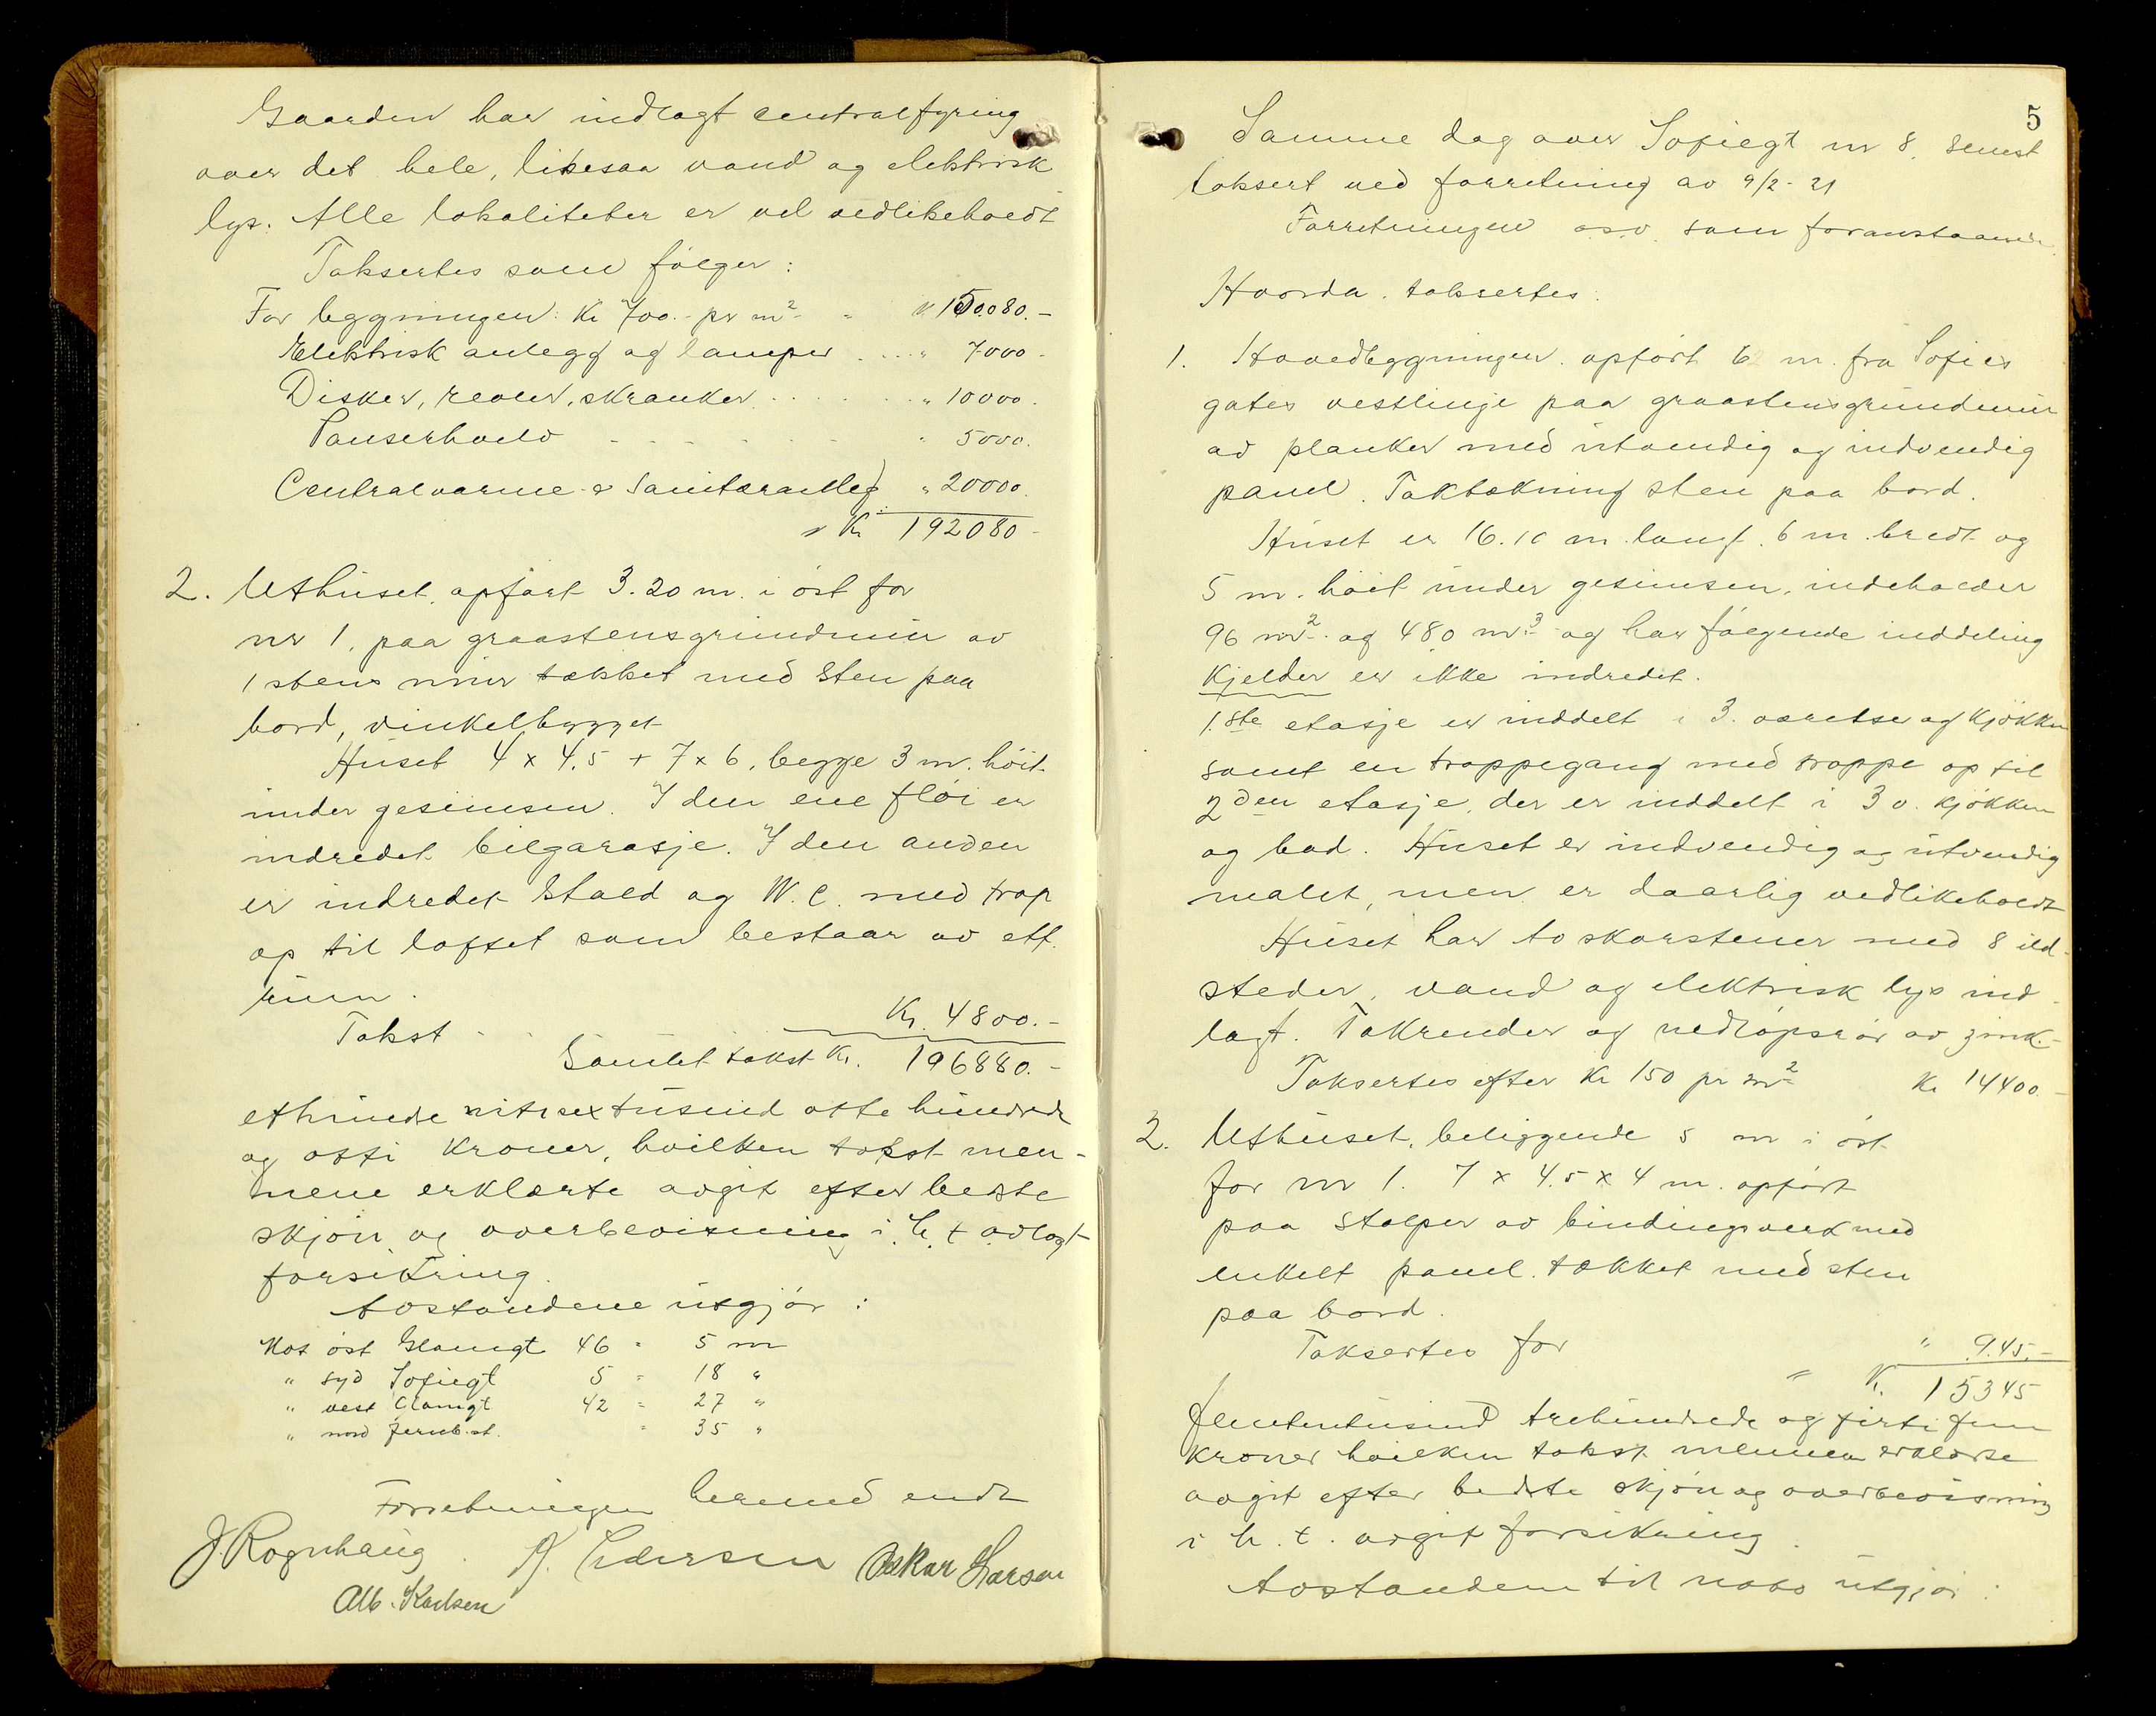 Gaarden har indlagt centralfyring
over det hele, likesaa vand og elektrisk
lys. Alle lokaliteter er vel vedlikeholdt
Taksertes som følger:
For bygningen: Kr 700.- pr m² - " 150.080.-
Elektrisk anlegg og lamper .... " 7000.-
Disker, reoler, skranker ...... " 10000.
Panserhvelv - - - - - " 5000.
Centralvarme & Sanitæranleg " 20000.
" Kr 192080-
2. Uthuset, opført 3.20 m. i øst for
nr 1, paa graastensgrundmur av
1 stens mur tækket med sten paa
bord, vinkelbygget
Huset 4 x 4.5 + 7 x 6, begge 3 m. høit
under gesimsen. I den ene fløi er
indredet bilgarasje. I den anden
er indredet Stald og W.C. med trap
op til loftet som bestaar av ett
rum.
Takst - - Kr. 4800.-
Samlet takst Kr. 196880.-
ethundre nitisextusind otte hundrede
og otti kroner, hvilken takst men-
nene erklærte avgit efter bedste
skjøn og overbevisning i h. t avlagt
forsikring.
Avstandene utgjør:
Mot øst Glamgt 46 - 5 m
" syd Sofiegt 5 - 18 "
" vest Glamgt 42 - 27 "
" nord Jernb.st. - 35 "
Forretningen hermed endt
J. Rognhaug. A. Pedersen Oskar Larsen
Alb. Karlsen
5
Samme dag over Sofiegt nr 8, senest
taksert ved forretning av 9/2-21
Forretningen osv. som foranstaaende
Hvorda. taksertes:
1. Hovedbygningen. opført 6 m. fra Sofies
gates vestlinje paa graastensgrundmur
av planker med utvendig og indvendig
panel. Taktækning sten paa bord.
Huset er 16.10 m. langt. 6 m. bredt og
5 m. høit under gesimsen, indeholder
96 m². og 480 m³ og har følgende inddeling
Kjelder er ikke indredet.
1.ste etasje er inddelt i 3. værelser og kjøkken
samt en trappegang med trappe op til
2den etasje, der er inddelt i 3 v. kjøkken
og bad. Huset er indvendig og utvendig
malet, men er daarlig vedlikeholdt
Huset har to skorstener med 8 ild-
steder, vand og elektrisk lys ind-
lagt. Takrender og nedløpsrør av zink.-
Taksertes efter Kr 150 pr m² Kr 14400.-
2. Uthuset, beliggende 5 m i øst
for nr 1. 7 x 4.5 x 4 m. opført
paa stolper av bindingsverk med
enkelt panel. tækket med sten
paa bord.
Taksertes for " 945.-
" Kr. 15345
femtentusind trehundrede og firti fem
kroner hvilken takst mennene erklærte
avgit efter bedste skjøn og overbevisning
i h. t. avgit forsikring.
Avstanden til nabo utgjør: